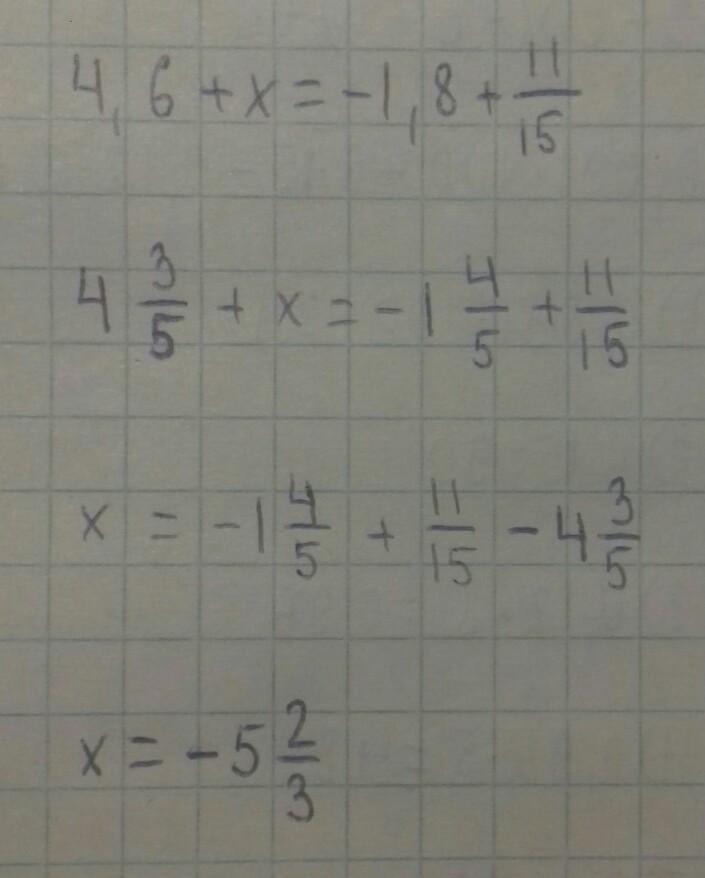 4,6 + x = -1,8 + 11/15
4 3/5 + x = -1 4/5 + 11/15
x = -1 4/5 + 11/15 - 4 3/5
x = -5 2/3